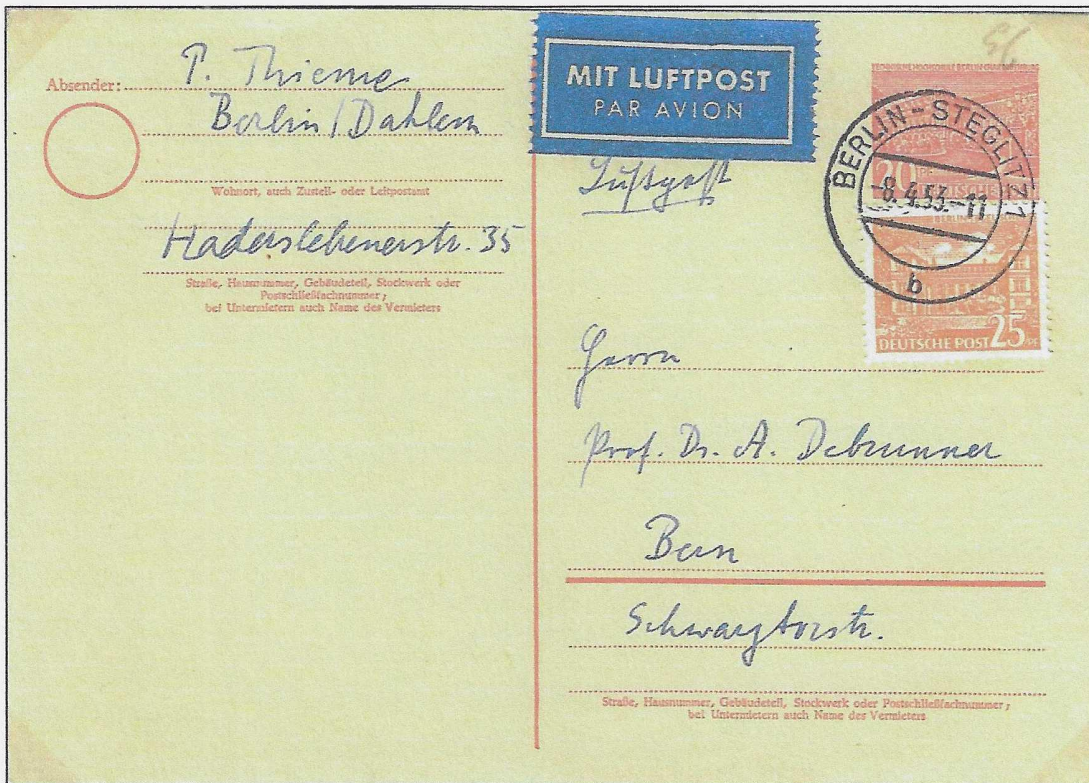 Absender: P. Thieme
Berlin/Dahlem
Wohnort, auch Zustell- oder Leitpostamt
Haderslebenerstr. 35
Straße, Hausnummer, Gebäudeteil, Stockwerk oder
Postschließfachnummer;
bei Untermietern auch Name des Vermieters
MIT LUFTPOST
PAR AVION
Luftpost
56
TECHNISCHE HOCHSCHULE BERLIN-CHARLOTTENBURG
20
BERLIN-STEGLITZ 1
-8.4.53.-11
b
DEUTSCHE POST 25 PF
Herrn
Prof. Dr. A. Debrunner
Bern
Schwarztorstr.
Straße, Hausnummer, Gebäudeteil, Stockwerk oder Postschließfachnummer;
bei Untermietern auch Name des Vermieters